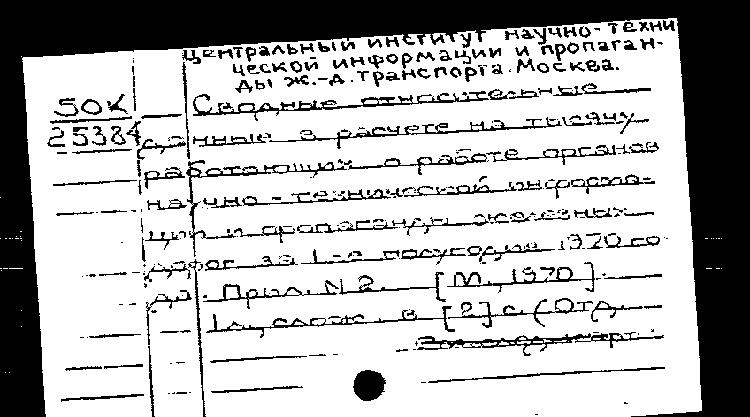 Центральный институт научно-техни
ческой информации и пропаган-
ды ж.-д. транспорта. Москва.
50К
25384
Сводные относительные
данные в расчете на тысячу
работающих о работе органов
научно-технической информа-
ции и пропаганды железных
дорог за 1-е полугодие 1970 го
да. Прил. N 2. [М., 1970].
1 л., слож. в [2] с. (Отд.